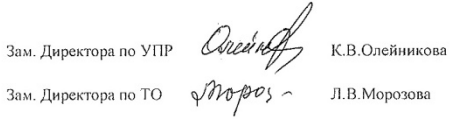 Зам. Директора по УПР Олейник К.В.Олейникова
Зам. Директора по ТО Мороз К.В.Морозова